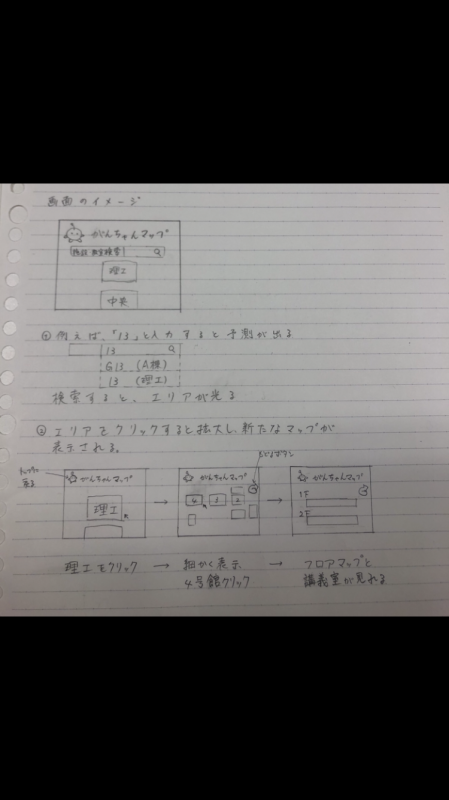 画面のイメージ
がんちゃんマップ
施設 教室検索
理工
中央
① 例えば、「13」と入力すると予測が出る
13
G13 (A棟)
13 (理工)
検索すると、エリアが光る
② エリアをクリックすると拡大し、新たなマップが
表示される。
もどるボタン
がんちゃんマップ
がんちゃんマップ
がんちゃんマップ
理工
4
1F
2F
理工をクリック → 細かく表示 → フロアマップと
4号館クリック
講義室が見れる